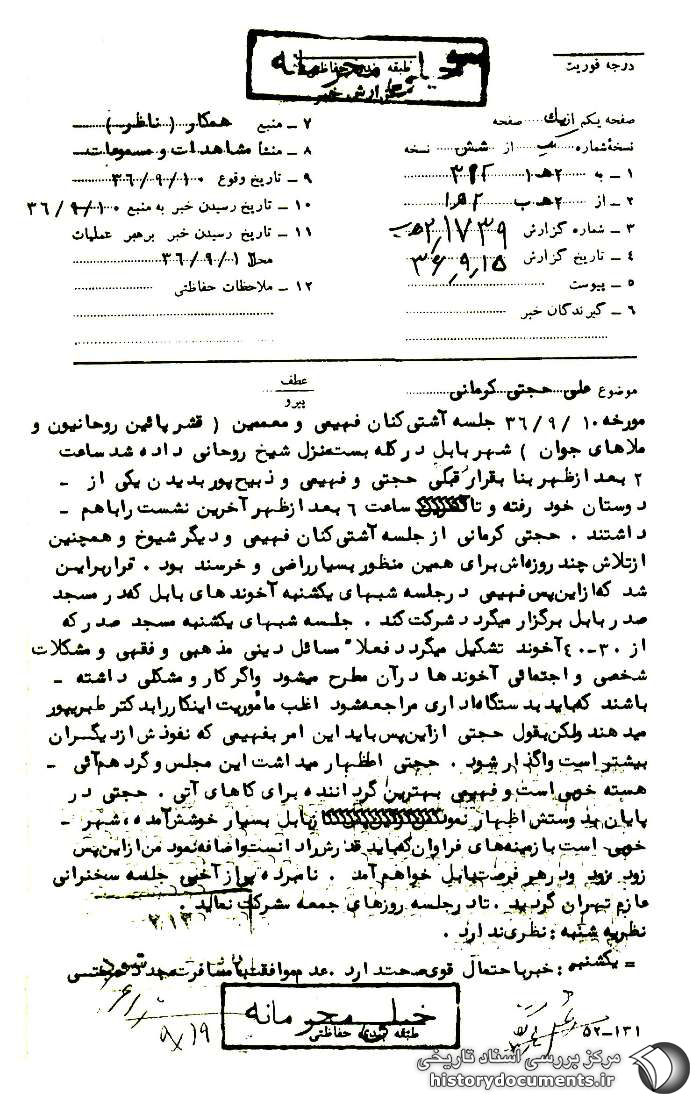 خیلی محرمانه
طبقه بندی حفاظتی
گزارش خبر
درجه فوریت
صفحه یکم از یک صفحه
نسخهٔ شماره از شش نسخه
۱ – به ۲هـ۱ ۳۱۲
۲ – از ۲هـ ب
۳ – شماره گزارش ۲٫۱۷۳۹
۴ – تاریخ گزارش ۳۶٫۹٫۱۵
۵ – پیوست
۶ – گیرندگان خبر
۷ – منبع همکار (ناظر)
۸ – منشأ مشاهدات و مسموعات
۹ – تاریخ وقوع ۳۶/۹/۱۰
۱۰ – تاریخ رسیدن خبر به منبع ۳۶/۹/۱۰
۱۱ – تاریخ رسیدن خبر برهبر عملیات
محل ۳۶/۹/۱۲
۱۲ – ملاحظات حفاظتی
موضوع علی حجتی کرمانی
عطف
پیرو
مورخه ۳۶/۹/۱۰ جلسه آشتی کنان فهیمی و معممین ( قشر پائین روحانیون و
ملاهای جوان ) شهر بابل در کله بست منزل شیخ روحانی داده شد ساعت
۲ بعد ازظهر بنا بقرار قبلی حجتی و فهیمی و ذبیح پور بدیدن یکی از –
دوستان خود رفته و تا ساعت ٦ بعد ازظهر آخرین نشست را باهم –
داشتند . حجتی کرمانی از جلسه آشتی کنان فهیمی و دیگر شیوخ و همچنین
ازتلاش چند روزه اش برای همین منظور بسیار راضی و خرسند بود . قرار براین
شد که ازاین پس فهیمی درجلسه شبهای یکشنبه آخوند های بابل که در مسجد
صدر بابل برگزار میگردد شرکت کند . جلسه شبهای یکشنبه مسجد صدر که
از ۳۰–٤۰ آخوند تشکیل میگردد فعلا" مسائل دینی مذهبی و فقهی و مشکلات
شخصی و اجتماعی آخوند ها درآن مطرح میشود واگر کار و مشکلی داشته –
باشند که باید بدستگاه اداری مراجعه شود اغلب مأموریت اینکار را بدکتر طبریپور
میدهند ولکن بقول حجتی ازاین پس باید این امر بفهیمی که نفوذش از دیگران
بیشتر است واگذار شود . حجتی اظهار میداشت این مجلس و گردهم آئی –
هسته خوبی است و فهیمی بهترین گرداننده برای کاهای آتی . حجتی در
پایان بدوستش اظهار نمود از بابل بسیار خوشش آمده ، شهر –
خوبی است با زمینه های فراوان که باید قدرش را دانست واضافه نمود من ازاین پس
زود بزود ودر هر فرصت ببابل خواهم آمد . نامبرده پس از آخرین جلسه سخنرانی
عازم تهران گردید . تا در جلسه روزهای جمعه شرکت نماید .
نظریه شنبه : نظری ندارد .
یکشنبه : خبر با احتمال قوی صحت دارد . عدم موافقت با مسافرت مجدد حجتی
۹/۱۹
۵۲–۱۳۱
خیلی محرمانه
طبقه بندی حفاظتی
مرکز بررسی اسناد تاریخی
historydocuments.ir